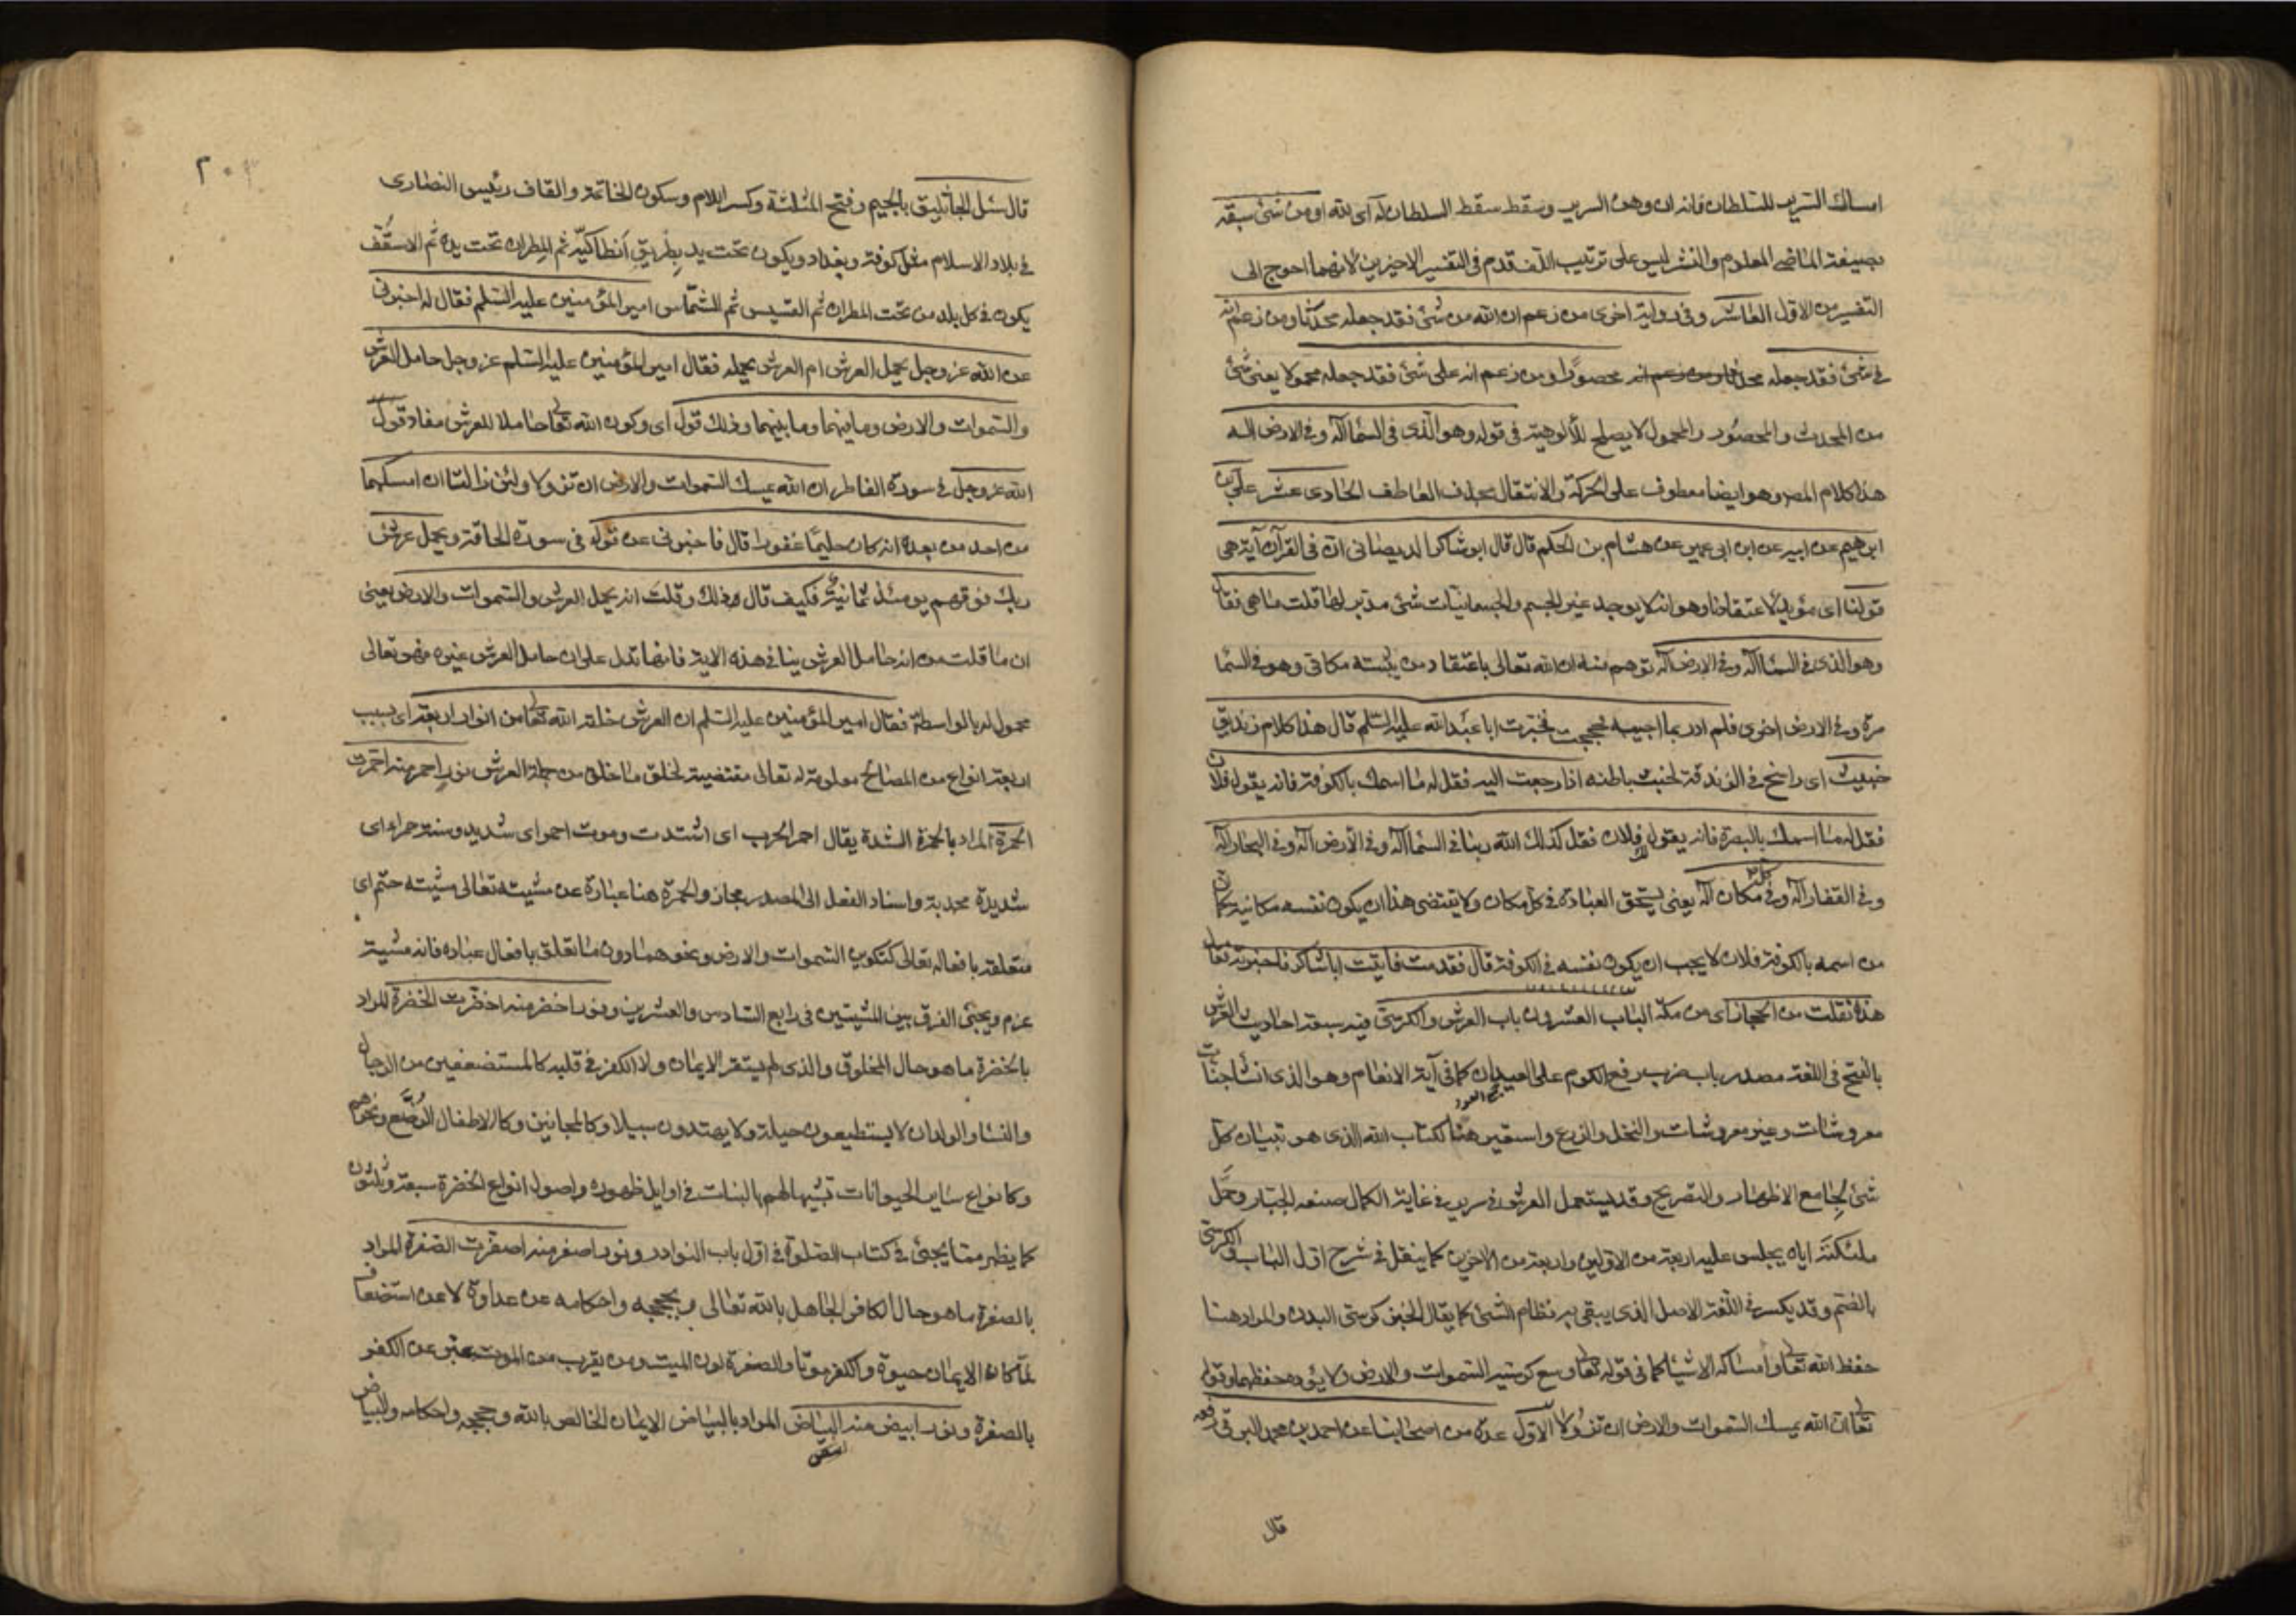 امساك السرير للسلطان فانه ان وهن السرير وسقط سقط السلطان له اى لله او من شئ سبقه
بصيغة الماضى المعلوم والنشر ليس على ترتيب اللف قدم فى التفسير الاخيرين لانهما احوج الى
التفسير من الاول العاشر وفى رواية اخرى من زعم ان الله من شئ فقد جعله محدثا ومن زعم انه
فى شئ فقد جعله محصورا ومن زعم انه على شئ فقد جعله محمولا يعنى شئ
من المحدث والمحصور والمحمول لا يصلح للألوهية فى قوله وهو الذى فى السماء اله وفى الارض اله
هذا كلام المص وهو ايضا معطوف على الحركة والانتقال بحذف العاطف الحادى عشر على بن
ابرهيم عن ابيه عن ابن ابى عمير عن هشام بن الحكم قال قال ابو شاكر الديصانى ان فى القرآن آية هى
قولنا اى مؤيد لاعتقادنا وهو انه لا يوجد غير الجسم والجسمانيات شئ مدبر لها قلت ما هى فقال
وهو الذى فى السماء اله وفى الارض اله توهم منه ان الله تعالى باعتقاد من يثبته مكانى وهو فى السما
مرة وفى الارض اخرى فلم ادر بما اجيبه فحججت فخبرت ابا عبد الله عليه السلم قال هذا كلام زنديق
خبيث اى راسخ فى الزندقة لخبث باطنه اذا رجعت اليه فقل له ما اسمك بالكوفة فانه يقول فلان
فقل له ما اسمك بالبصرة فانه يقول فلان فقل كذلك الله ربنا فى السماء اله وفى الارض اله وفى البحار اله
وفى القفار اله وفى كل مكان اله يعنى يستحق العبادة فى كل مكان ولا يقتضى هذا ان يكون نفسه مكانية كما ان
من اسمه بالكوفة فلان لا يجب ان يكون نفسه فى الكوفة قال فقدمت فاتيت ابا شاكر فاخبرته فقال
هذه نقلت من الحجاز اى من مكة الباب العشرون باب العرش والكرسى فيه سبعة احاديث العرش
بالفتح فى اللغة مصدر باب ضرب رفع الكروم على العيدان كما فى آية الانعام وهو الذى انشا جنات
جمع العود
معروشات وغير معروشات والنخل والزرع واستعير هنا لكتاب الله الذى هو تبيان كل
شئ لجامع الاظهار والتصريح وقد يستعمل العرش فى سرير فى غاية الكمال صنعه الجبار وحمل
ملئكته اياه يجلس عليه اربعة من الاولين واربعة من الاخرين كما ينقل فى شرح اول الباب والكرسى
بالضم وقد يكسر فى اللغة الاصل الذى يبقى به نظام الشئ كما يقال الخبز كرسى البدن والمراد هنا
حفظ الله تعالى وامساكه الاشياء كما فى قوله تعالى وسع كرسيه السموات والارض ولا يؤده حفظهما وقوله
تعالى ان الله يمسك السموات والارض ان تزولا الاول عدة من اصحابنا عن احمد بن محمد البرقى رفعه
قال
٢٠
قال سئل الجاثليق بالجيم وفتح المثلثة وكسر اللام وسكون الخاتمة والقاف رئيس النصارى
فى بلاد الاسلام مثل كوفة وبغداد ويكون تحت يد بطريق أنطاكية ثم المطران تحت يده ثم الاسقف
يكون فى كل بلد من تحت المطران ثم القسيس ثم الشماس امير المؤمنين عليه السلم فقال له اخبرنى
عن الله عز وجل يحمل العرش ام العرش يحمله فقال امير المؤمنين عليه السلم عز وجل حامل العرش
والسموات والارض وما فيهما وما بينهما وذلك قول اى وكون الله تعالى حاملا للعرش مفاد قول
الله عز وجل فى سورة الفاطر ان الله يمسك السموات والارض ان تزولا ولئن زالتا ان امسكهما
من احد من بعده انه كان حليما غفورا قال فاخبرنى عن قوله فى سورة الحاقة ويحمل عرش
ربك فوقهم يومئذ ثمانية فكيف قال ذلك وقلت انه يحمل العرش والسموات والارض يعنى
ان ما قلت من انه حامل العرش ينافى هذه الاية فانها تدل على ان حامل العرش غيره فهو تعالى
محمول له بالواسطة فقال امير المؤمنين عليه السلم ان العرش خلقه الله تعالى من انوار اربعة اى بسبب
اربعة انواع من المصالح معلومة له تعالى مقتضية لخلق ما خلق من جملة العرش نور احمر منه احمرت
الحمرة المراد بالحمرة الشدة يقال احمر الحرب اى اشتدت وموت احمر اى شديد وسنة حمراء اى
شديدة مجدبة واسناد الفعل الى المصدر مجاز والحمرة هنا عبارة عن مشيته تعالى مشية حتم اى
متعلقة بافعاله تعالى كتكوين السموات والارض ونحوهما دون ما تعلق بافعال عباده فانه مشية
عزم ويجئ الفرق بين المشيتين فى رابع السادس والعشرين ونور اخضر منه اخضرت الخضرة المراد
بالخضرة ما هو حال المخلوق والذى لم يستقر الايمان ولا الكفر فى قلبه كالمستضعفين من الرجال
والنساء والولدان لا يستطيعون حيلة ولا يهتدون سبيلا وكالمجانين وكالاطفال الرضع ونحوهم
وكانواع ساير الحيوانات تشبيها لهم بالنبات فى اوايل ظهوره واصول انواع الخضرة سبعة وثلثون
كما يظهر مما يجئ فى كتاب الصلوة فى اول باب النوادر ونور اصفر منه اصفرت الصفرة المراد
بالصفرة ما هو حال الكافر الجاهل بالله تعالى وبحججه واحكامه عن عداوة لا عن استضعاف
لما كان الايمان حيوة والكفر موتا والصفرة لون الميت ومن يقرب من الموت عبر عن الكفر
بالصفرة ونور ابيض منه البياض المراد بالبياض الايمان الخالص بالله وحججه واحكامه والبياض